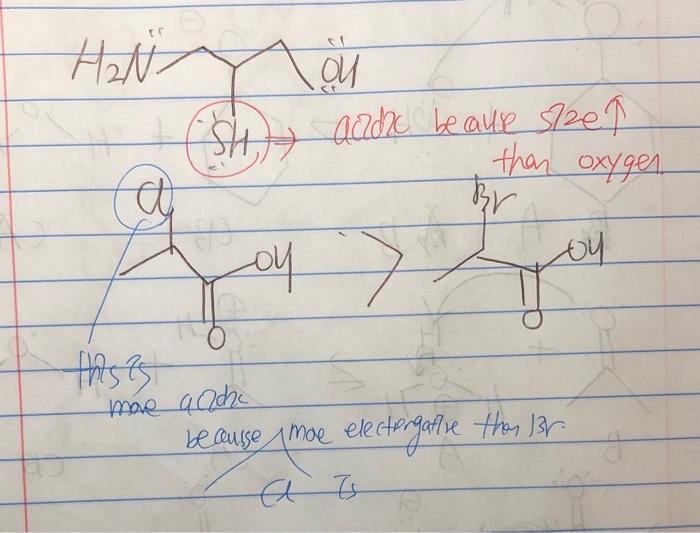 H₂N OH
SH → acidic because size↑
than oxygen.
Cl Br
OH > OH
O O
this is
more acidic
because more electergative than Br.
Cl is